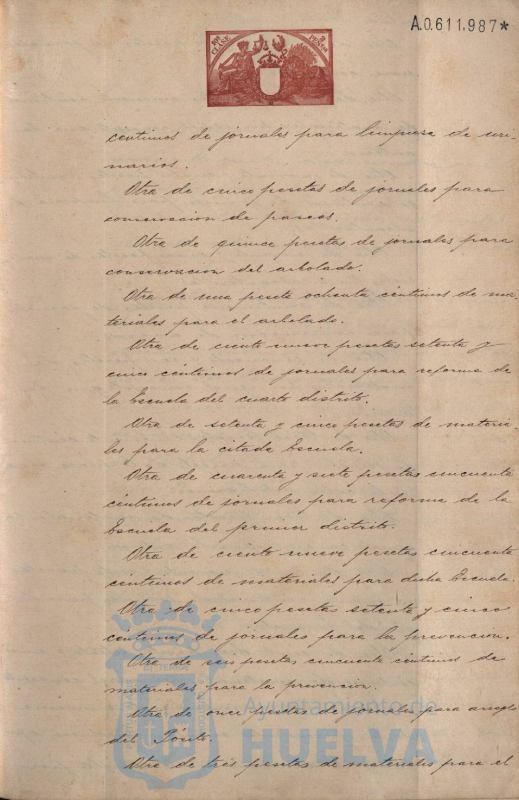 A.0.611.987*
10ª CLASE
céntimos de jornales para limpiesa de uri-
narios.
Otra de cinco pesetas de jornales para
conservacion de paseos.
Otra de quince pesetas de jornales para
conservacion del arbolado.
Otra de una peseta ochenta céntimos de ma-
teriales para el arbolado.
Otra de ciento nueve pesetas setenta y
cinco céntimos de jornales para reforma de
la Escuela del cuarto distrito.
Otra de setenta y cinco pesetas de materia-
les para la citada Escuela.
Otra de cuarenta y siete pesetas cincuenta
céntimos de jornales para reforma de la
Escuela del primer distrito.
Otra de ciento nueve pesetas cincuenta
céntimos de materiales para dicha Escuela.
Otra de cinco pesetas setenta y cinco
céntimos de jornales para la prevencion.
Otra de seis pesetas cincuenta céntimos de
materiales para la prevencion.
Otra de once pesetas de jornales para arreglo
del Pósito.
Otra de tres pesetas de materiales para el
Ayuntamiento de
HUELVA